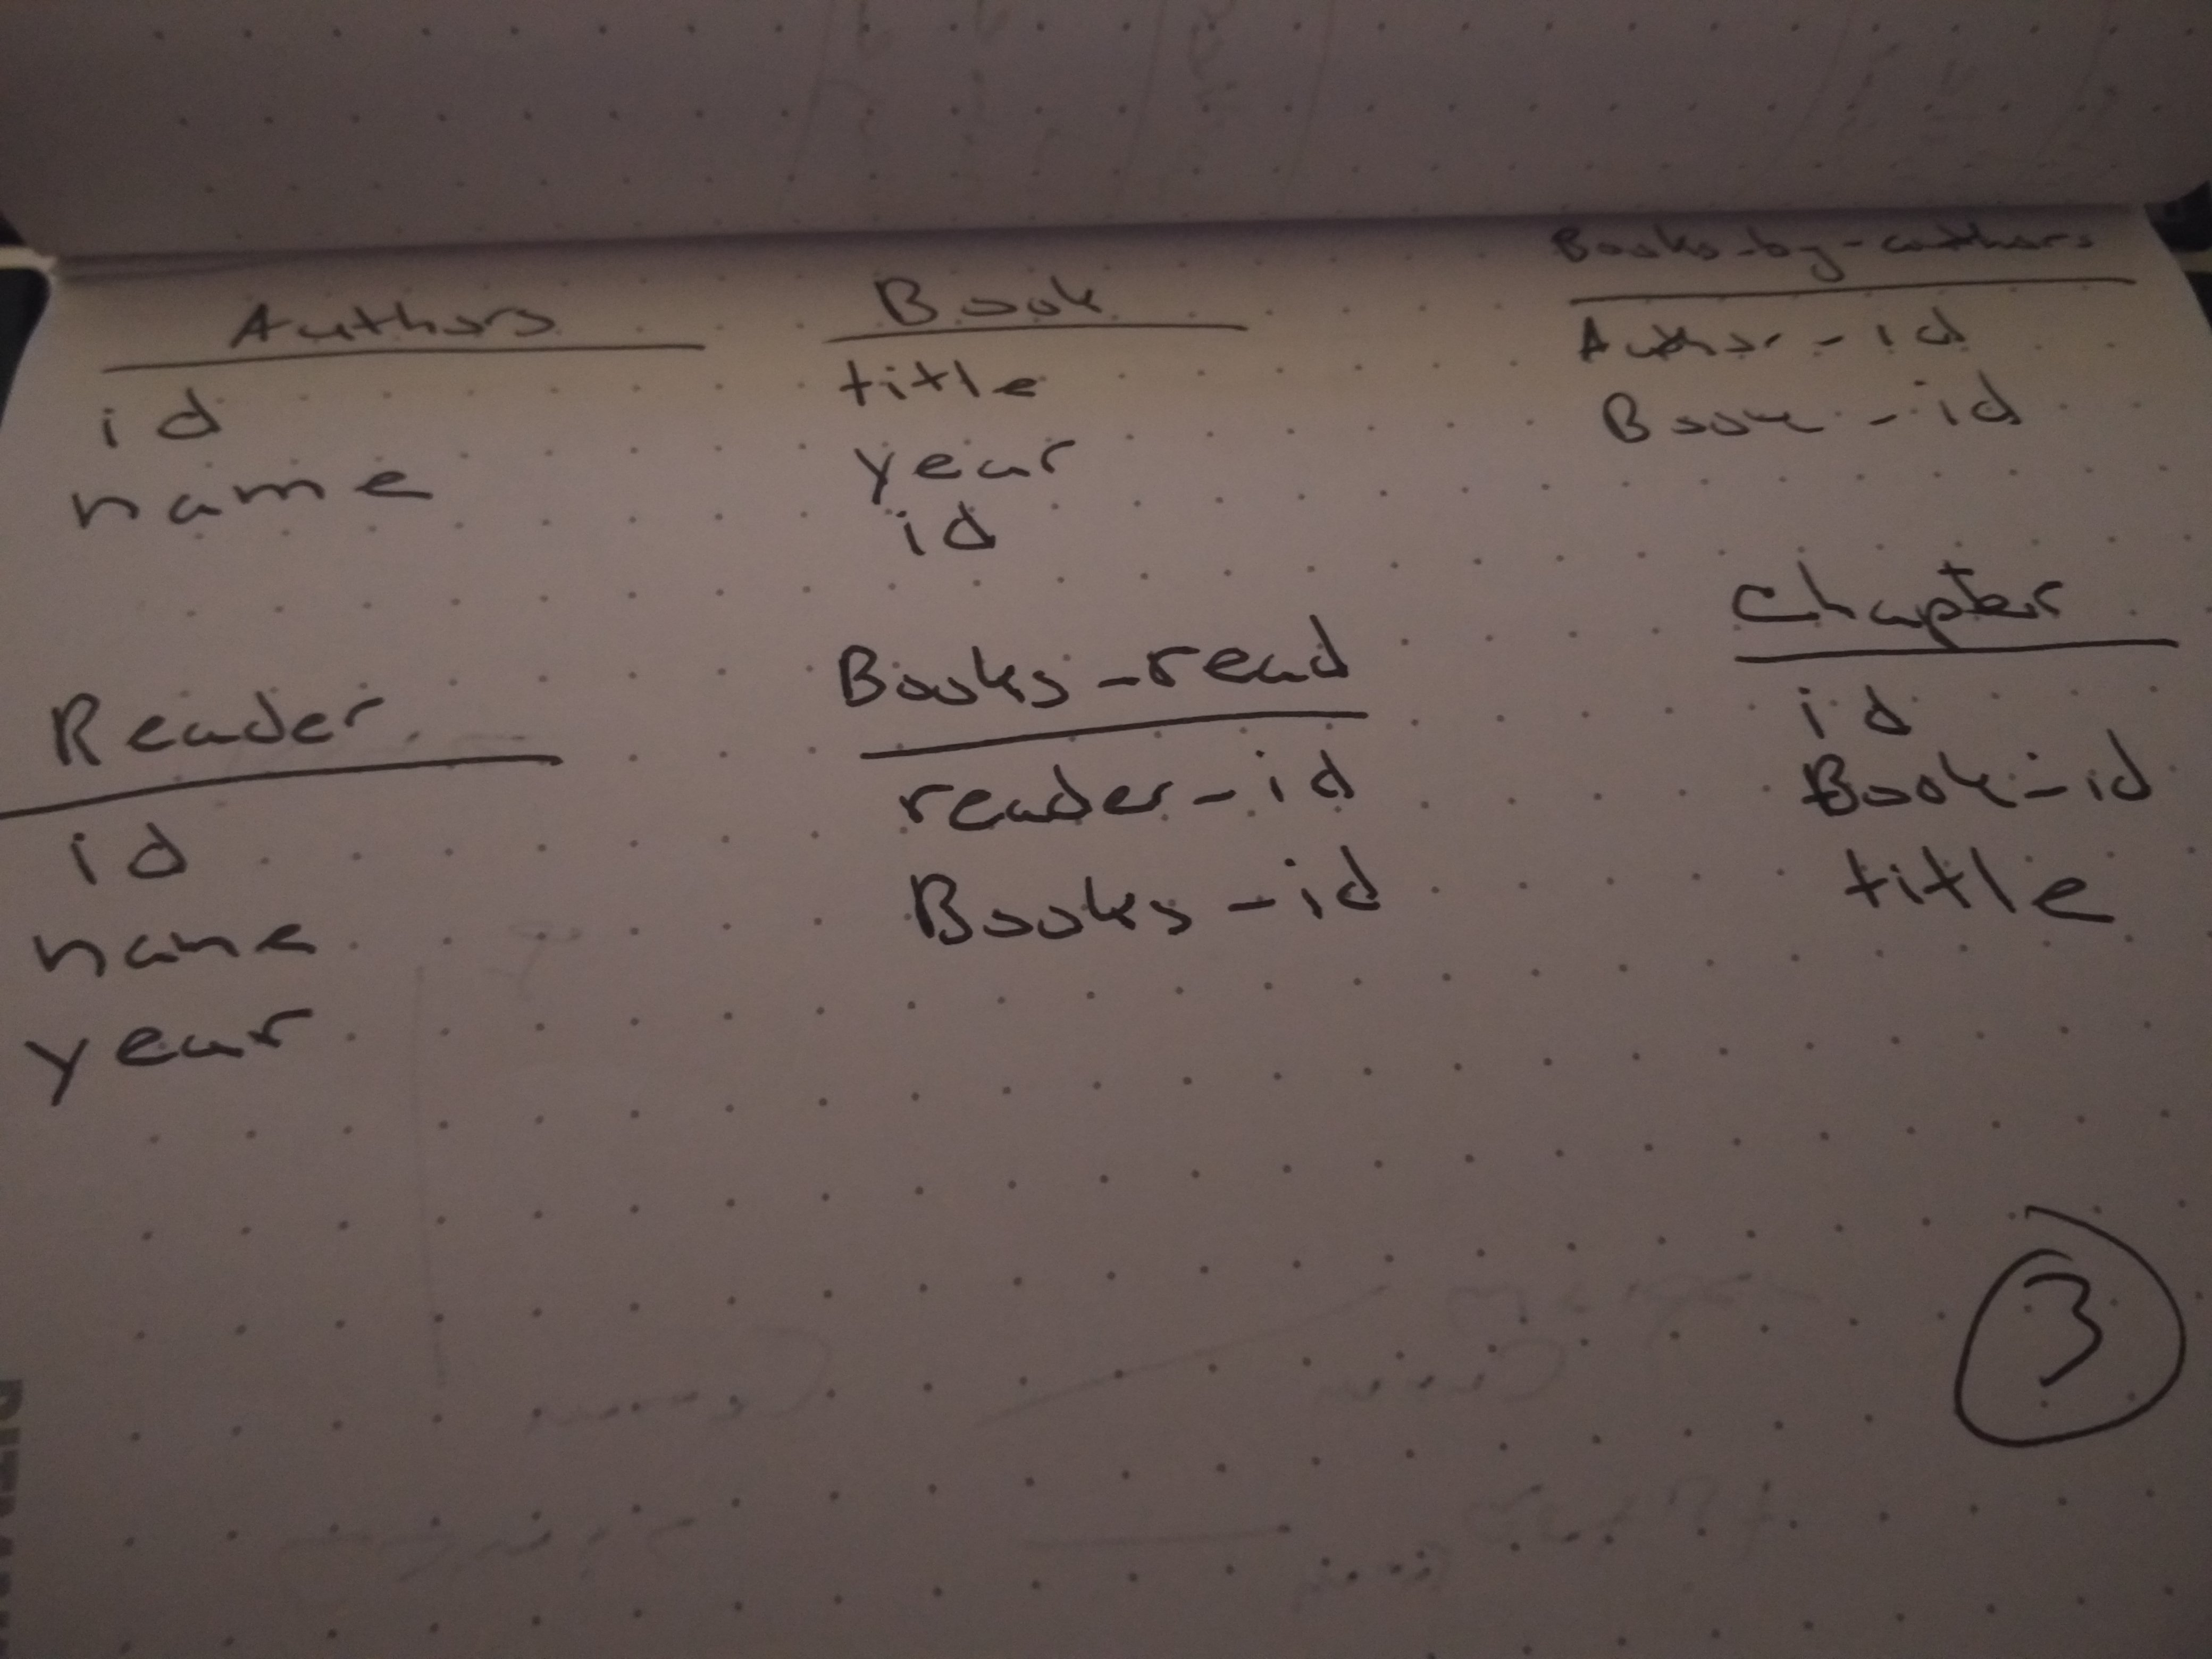 Authors
id
name
Book
title
year
id
Books-by-authors
Author-id
Book-id
Reader
id
name
year
Books-read
reader-id
Books-id
Chapter
id
Book-id
title
3